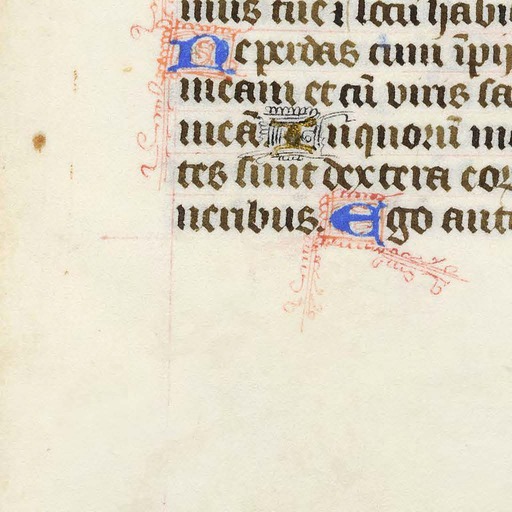 mus tue ⁊ locū habi
Ne perdas cum īpi
meam et cū viris sa
meā In quorū m
tes sunt dextera eo
neribus. Ego aut